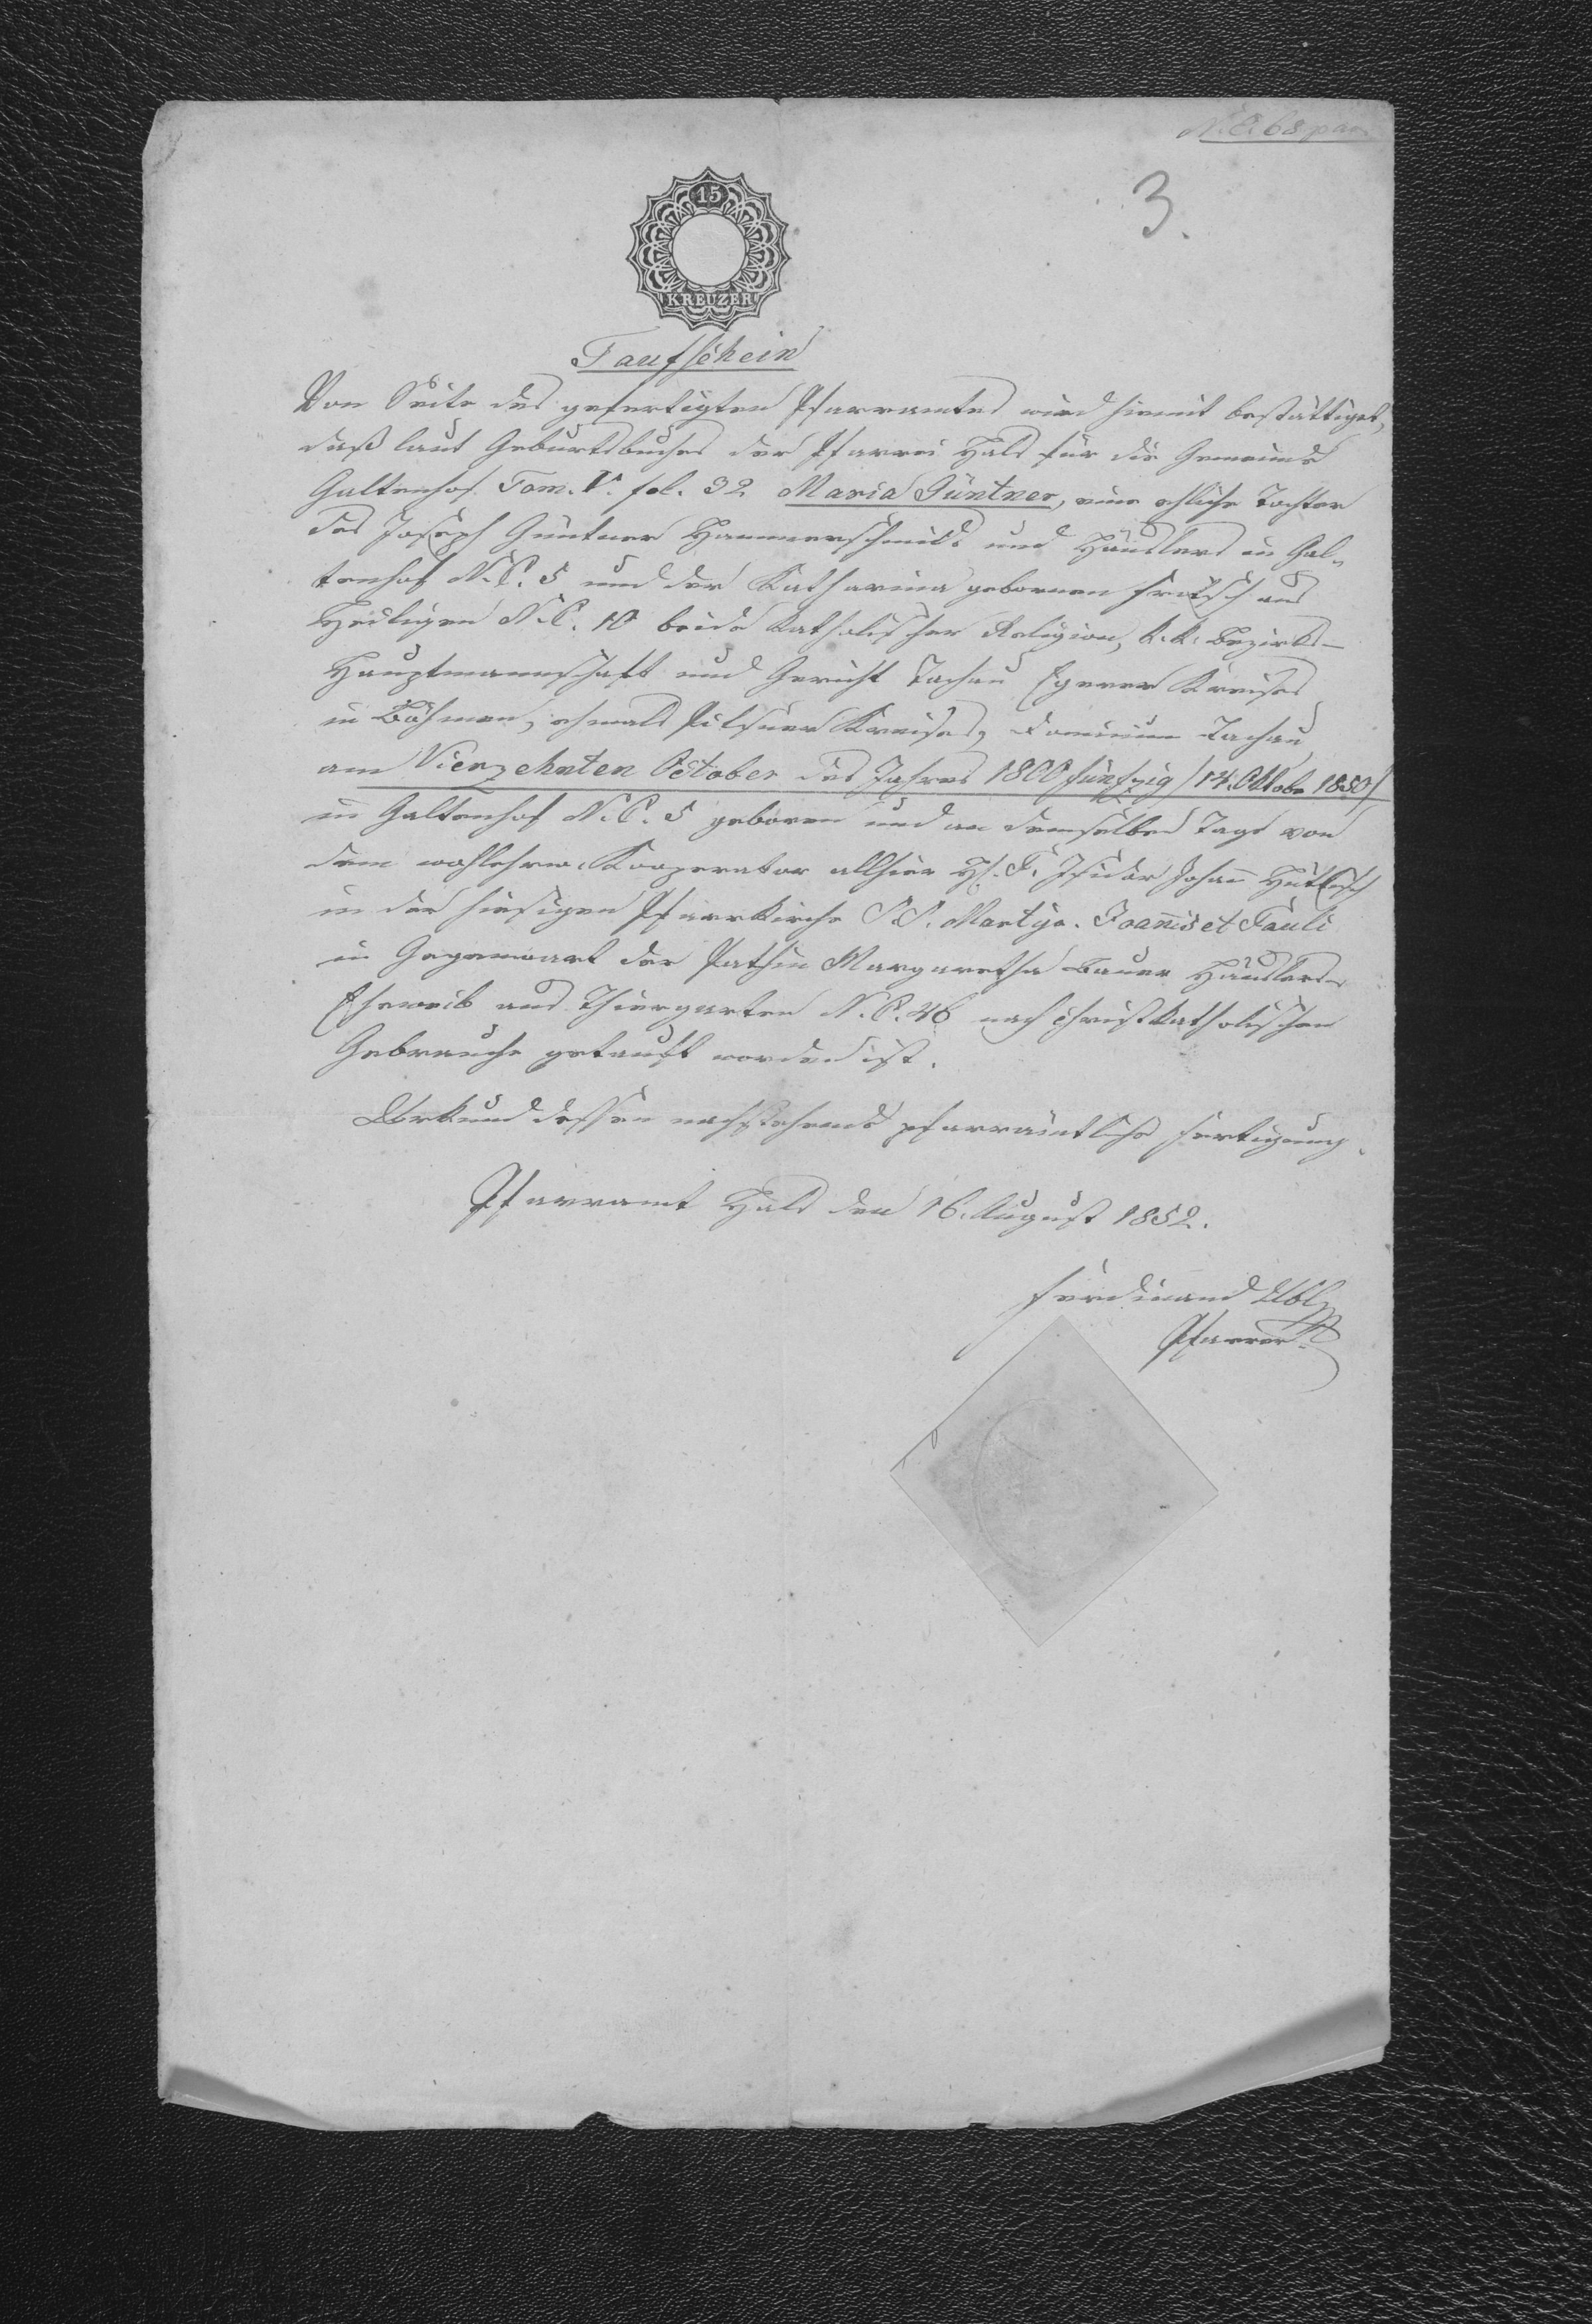 N. E. 68 par.
3.
15
KREUZER
Taufschein
Von Seite des gefertigten Pfarramtes wird hiemit bestättiget,
daß laut Geburtsbuches der Pfarrei Hals für die Gemeinde
Galtenhof Tom. V. fol. 32 Maria Güntner, eine ehliche Tochter
des Joseph Güntner Hammerschmids und Häuslers in Gal-
tenhof N. C. 5 und der Katharina gebornen Frötsch aus
Heiligen N. C. 10 beide katholischer Religion, k. k. Bezirks-
Hauptmannschaft und Gericht Tachau Egerer Kreises
in Böhmen, ehmals Pilsner Kreises, Dominium Tachau
am Vierzehnten October des Jahres 1800 fünfzig /14. Oktober 1850/
in Galtenhof N. C. 5 geboren und an demselben Tage von
dem wohlehrw. Kooperator allhier H. P. Isidor Johann
in der hiesigen Pfarrkirche S. S. Martyr. Joannis et Pauli
in Gegenwart der Pathin Margaretha Bauer Häuslers-
Eheweib aus Thiergarten N. C. 46 nach christkatholischen
Gebrauche getauft worden ist.
Urkund dessen nachstehende pfarrämtliche Fertigung.
Pfarramt Hals den 16. August 1852.
Ferdinand Ubl
Pfarrer